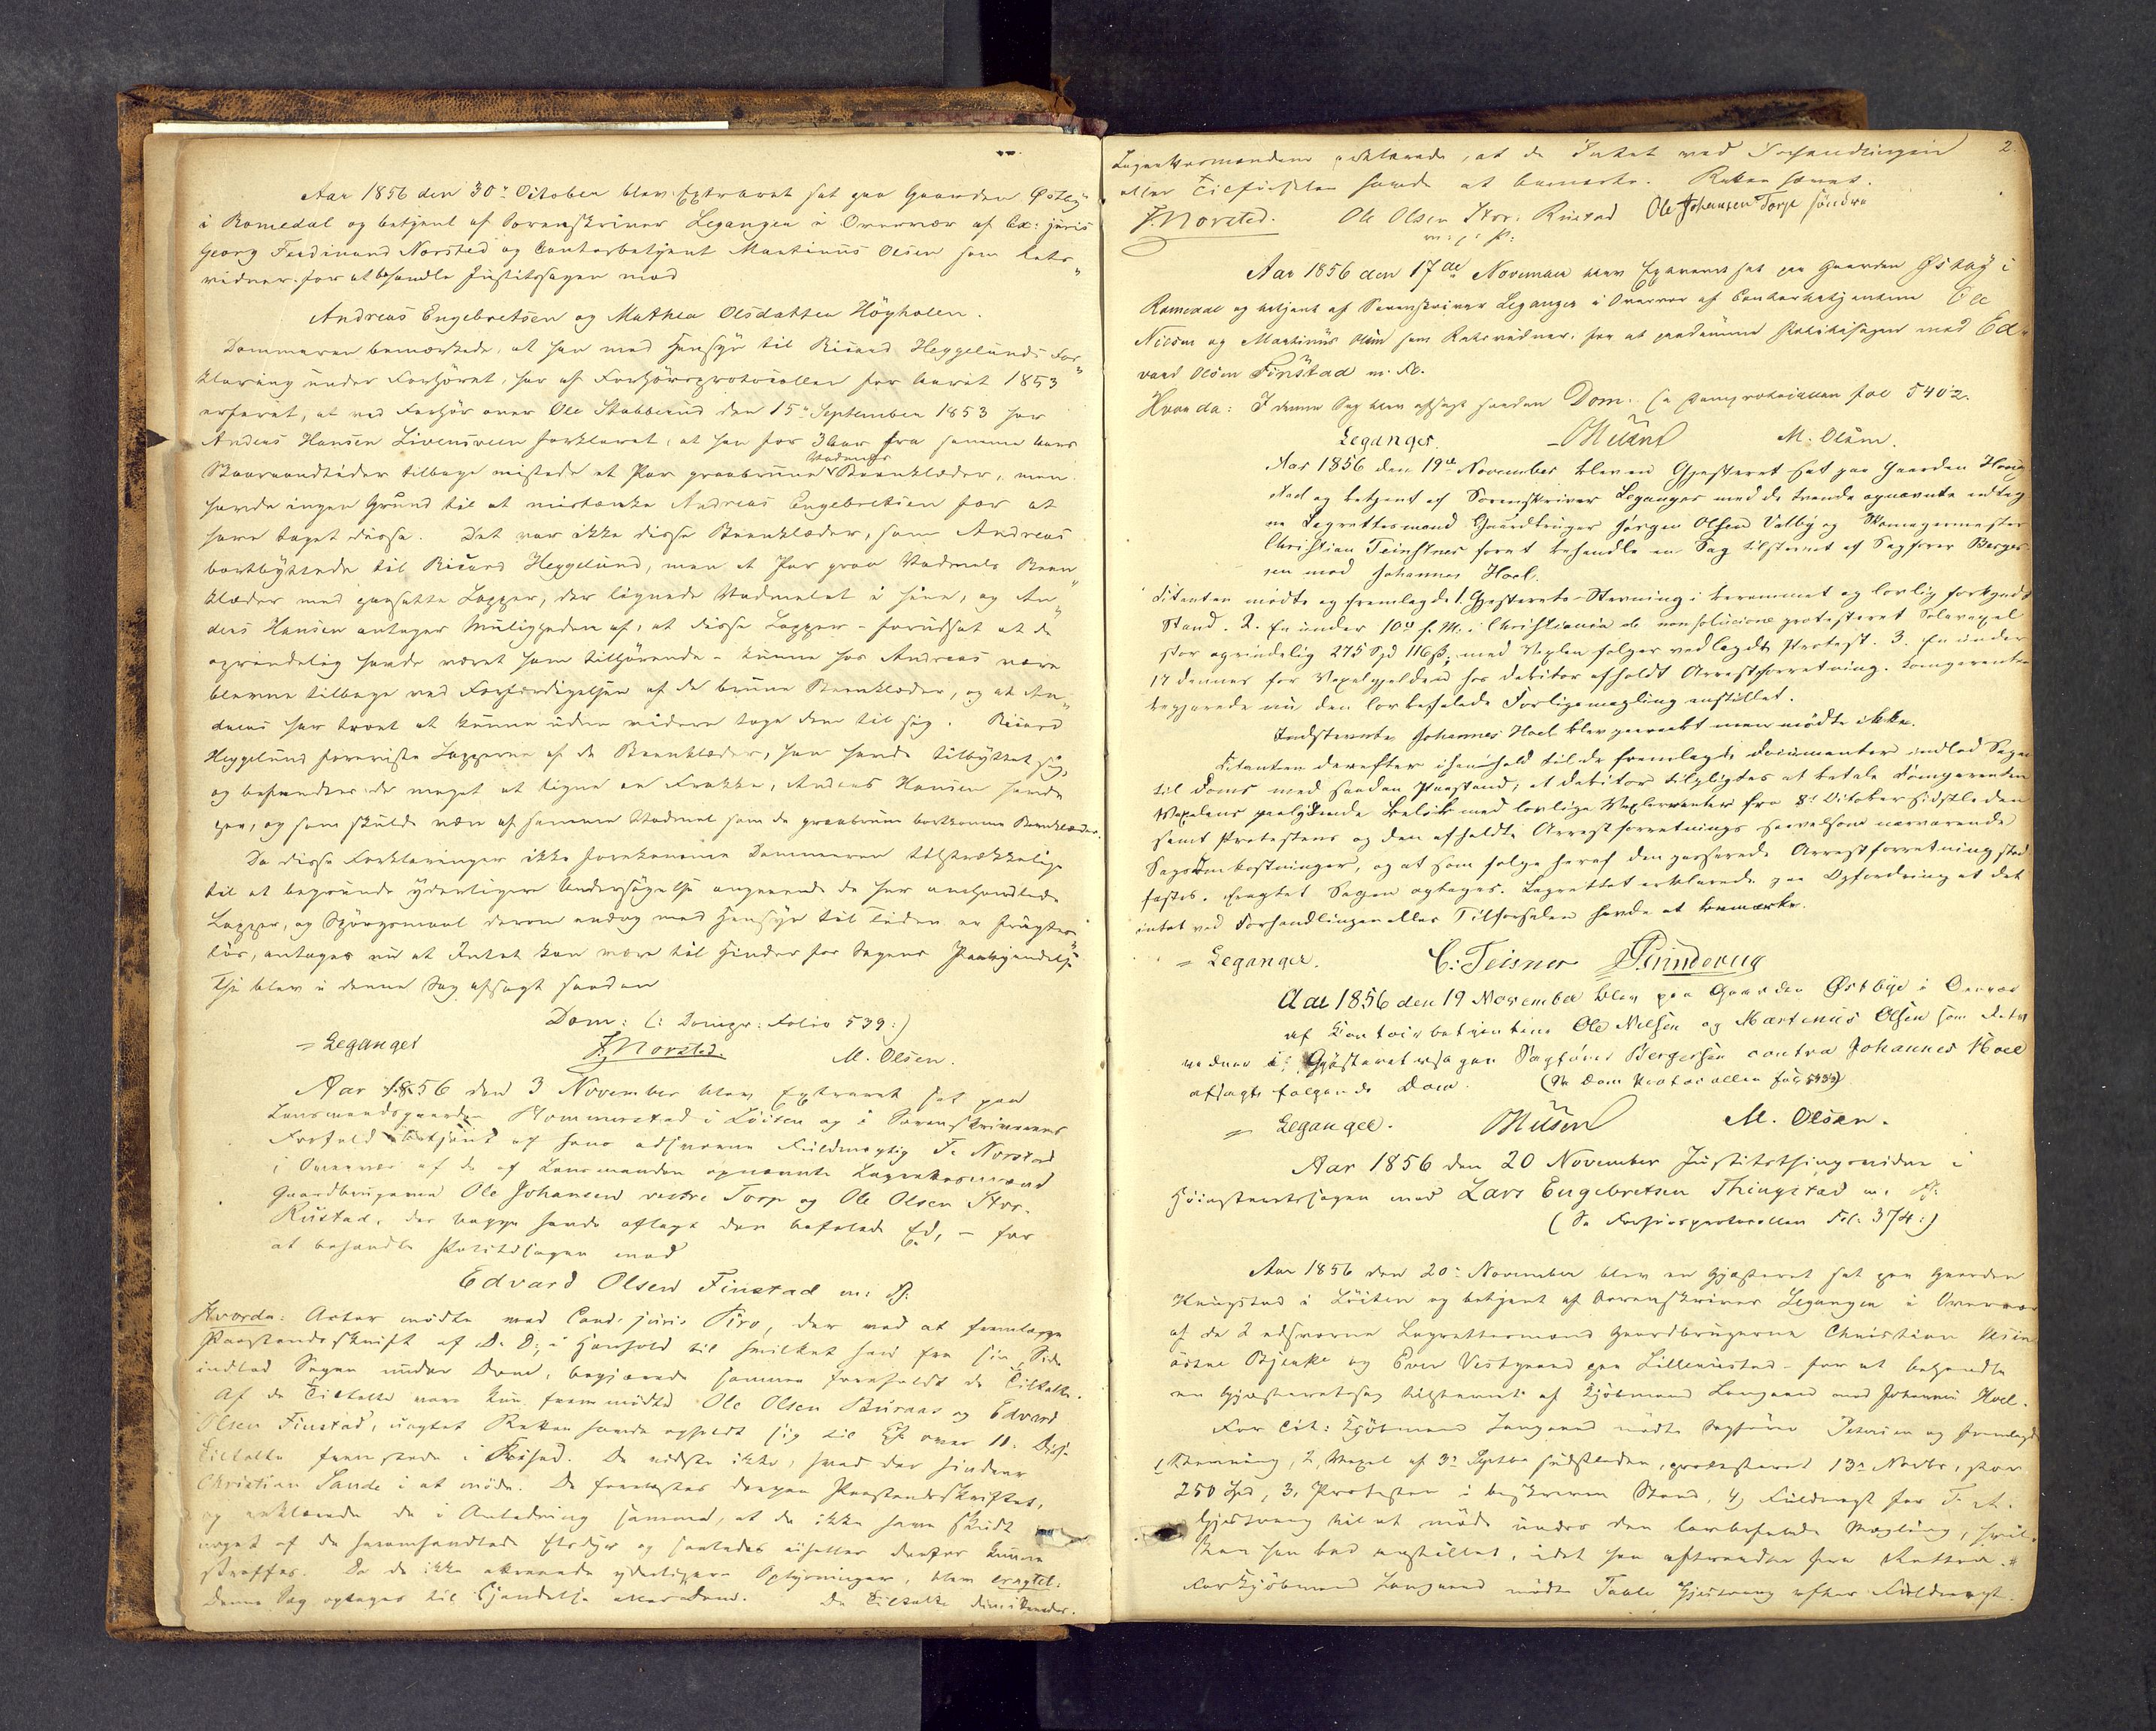 Aar 1856 den 30te October blev Extraret sat paa Gaarden Østby
i Romedal og betjent af Sorenskriver Leganger i Overvær af Ex: juris
Georg Ferdinand Norsted og Contorbetjent Martinus Olsen som Rets-
vidner, for at behandle Justitssagen mod
Andreas Engebretsen og Mathea Olsdatter Höyholen.
Dommeren bemærkede, at han med Hensyn til Ricard Heggelunds For-
klaring under Forhöret, har af Forhörsprotocollen for Aaret 1853
erfaret, at ved Forhör over Ole Stabberud den 15de September 1853 har
Andreas Hansen Livensveen forklaret, at han for 3 Aar fra samme Aars
Vaaraandtider tilbage mistede et Par graabrune Vadmels Beenklæder, men
havde ingen Grund til at mistænke Andreas Engebretsen for at
have taget disse. Det var ikke disse Beenklæder, som Andreas
bortbyttede til Ricard Heggelund, men et Par graa Vadmels Been-
klæder med paasatte Lapper, der lignede Vadmelet i hine, og An-
dreas Hansen antager Muligheden af, at disse Lapper - forudsat at de
oprindelig havde været ham tilhörende - kunne hos Andreas være
blevne tilbage ved Forfærdigelsen af de brune Beenklæder, og at An-
dreas har troet at kunne uden videre tage dem til sig. Ricard
Heggelund foreviste Lapperne af de Beenklæder, han havde tilbyttet sig,
og befandtes de meget at ligne en Frakke, Andreas Hansen havde
paa, og som skulde være af samme Vadmel som de graabrune bortkomne Beenklæder.
Da disse Forklaringer ikke forekomme Dommeren tilstrækkelige
til at begrunde yderligere Undersögelse angaaende de her omhandlede
Lapper, og Spörgsmaal derom endog med Hensyn til Tiden er frugtes-
lös, antages nu at Intet kan være til Hinder for Sagens Paakjendelse
Thi blev i denne Sag afsagt saadan
Dom: (: Dompr: Folio 539:)
= Leganger F. Norsted. M. Olsen.
Aar 1856 den 3 November blev Extraret sat paa
Lensmandsgaarden Hommerstad i Löiten og i Sorenskriverens
Forfald betjent af hans edsvorne Fuldmægtig F. Norsted
i Overvær af de af Lensmanden opnævnte Lagrettesmænd
Gaardbrugerne Ole Johansen vestre Torp og Ole Olsen Stor-
Rustad, der begge havde aflagt den befalede Ed, - for
at behandle Politisagen mod
Edvard Olsen Finstad m: fl:
Hvorda: Actor mödte ved Cand. juris Piro, der ved at fremlægge
Paastandsskrift af D. D., i Henhold til hvilket han fra sin Side
indlod Sagen under Dom, begjærede samme foreholdt de Tiltalte.
Af de Tiltalte vare kun fremmödte Ole Olsen Buraas og Edvard
Olsen Finstad, uagtet Retten havde opholdt sig til Kl over 11. Disse
Tiltalte fremstode i Frihed. De vidste ikke, hvad der hindrer
Christian Sande i at möde. De forelæstes derpaa Paastandsskriftet,
og erklærede de i Anledning samme, at de ikke have skudt
noget af de heromhandlede Elsdyr og saaledes ei heller derfor kunne
straffes. Da de ikke attraaede yderligere Oplysninger, blev eragtet:
Denne Sag optages til Kjendelse eller Dom. De Tiltalte dimitteredes.
2.
Lagrettesmændene erklærede, at de Intet ved Forhandlingen
eller Tilförslen havde at bemærke. Retten hævet.
F. Norsted. Ole Olsen Stor: Rustad Ole Johansen Torp söndre
m: p: P:
Aar 1856 den 17de November blev Extraret sat paa Gaarden Østby i
Romedal og betjent af Sorenskriver Leganger i Overvær af Contorbetjentene Ole
Nielsen og Martinus Olsen som Retsvidner, for at paadömme Politisagen mod Ed-
vard Olsen Finstad m. fl.
Hvorda: I denne Sag blev afsagt saadan Dom. (se Domprotocollen fol 540 2.
Leganger. ONilsen M. Olsen.
Aar 1856 den 19de November blev en Gjesteret sat paa Gaarden Houg-
stad og betjent af Sorenskriver Leganger med de tvende opnævnte edtag-
ne Lagrettesmænd Gaardbruger Jörgen Olsen Valby og Skomagermester
Christian Teinstner foret behandle en Sag tilstevnt af Sagförer Berger-
sen mod Johannes Hoel.
Citanten mödte og fremlagde 1. Gjesterets-Stevning i berammet og lovlig forkyndt
Stand. 2. En under 10de f. M. i Christiania de non solucione protesteret Solavexel
stor oprindelig 275 Spd 116 ß, med Vexlen fölger vedlagdt Protest. 3. En under
17 dennes for Vexelgjelden hos debitor afholdt Arrestforretning. Comparenten
begjærede nu den lovbefalede Forligsmægling anstillet.
Indstevnte Johannes Hoel blev paaraabt men mödte ikke.
Citanten derefter i henhold til de fremlagde Documenter indlod Sagen
til Doms med saadan Paastand, at debitor tilpligtes at betale Comparenten
Vexelens paalydende Belöb med lovlige Vexlerenter fra 8de October sidstleden
samt Protestens og den afholdte Arrestforretnings saavelsom nærværende
Sags Omkostninger, og at som fölge heraf den passerede Arrestforretning stad-
fæstes. Eragtet Sagen optages. Lagrettet erklærede paa Opfordring at det
intet ved Forhandlingen eller Tilförselen havde at bemærke.
= Leganger. C: Teisner
Aar 1856 den 19 November blev paa Gaarden Østbye i Overvær
af Contoirbetjentene Ole Nielsen og Martinus Olsen som Rets-
vidner i Gjesteretssagen Sagförer Bergersen contra Johannes Hoel
afsagt fölgende Dom. (Se Dom Protocollen fol: 543)
= Leganger. ONilsen M. Olsen.
Aar 1856 den 20 November Justitsthingsvidne i
Höiesteretssagen mod Lars Engebretsen Thingstad m. fl:
(Se Forhörsprotocollen Fol: 374:)
Aar 1856 den 20de November blev en Gjesteret sat paa Gaarden
Kringstad i Löiten og betjent af Sorenskriver Leganger i Overvær
af de 2 edsvorne Lagrettesmænd Gaardbrugerne Christian Olsen
östre Bjerke og Even Vestgaard paa Lillerustad - for at behandle
en Gjesteretssag tilstevnet af Kjöbmand Langaard mod Johannes Hoel.
For Cit: Kjöbmand Langaard mödte Sagförer Petersen og fremlagde
1 Stevning, 2, Vexel af 3de Septbr sidstleden, protesteret 13de Novbr, stor
250 Spd, 3, Protesten i beskreven Stand, 4, Fuldmagt for T. A.
Gjestvang til at möde under den lovbefalede Mægling, hvil-
ken han bad anstillet, idet han aftraadte fra Retten.
For Kjöbmand Langaard mödte Tahle Gjestvang efter Fuldmagt.